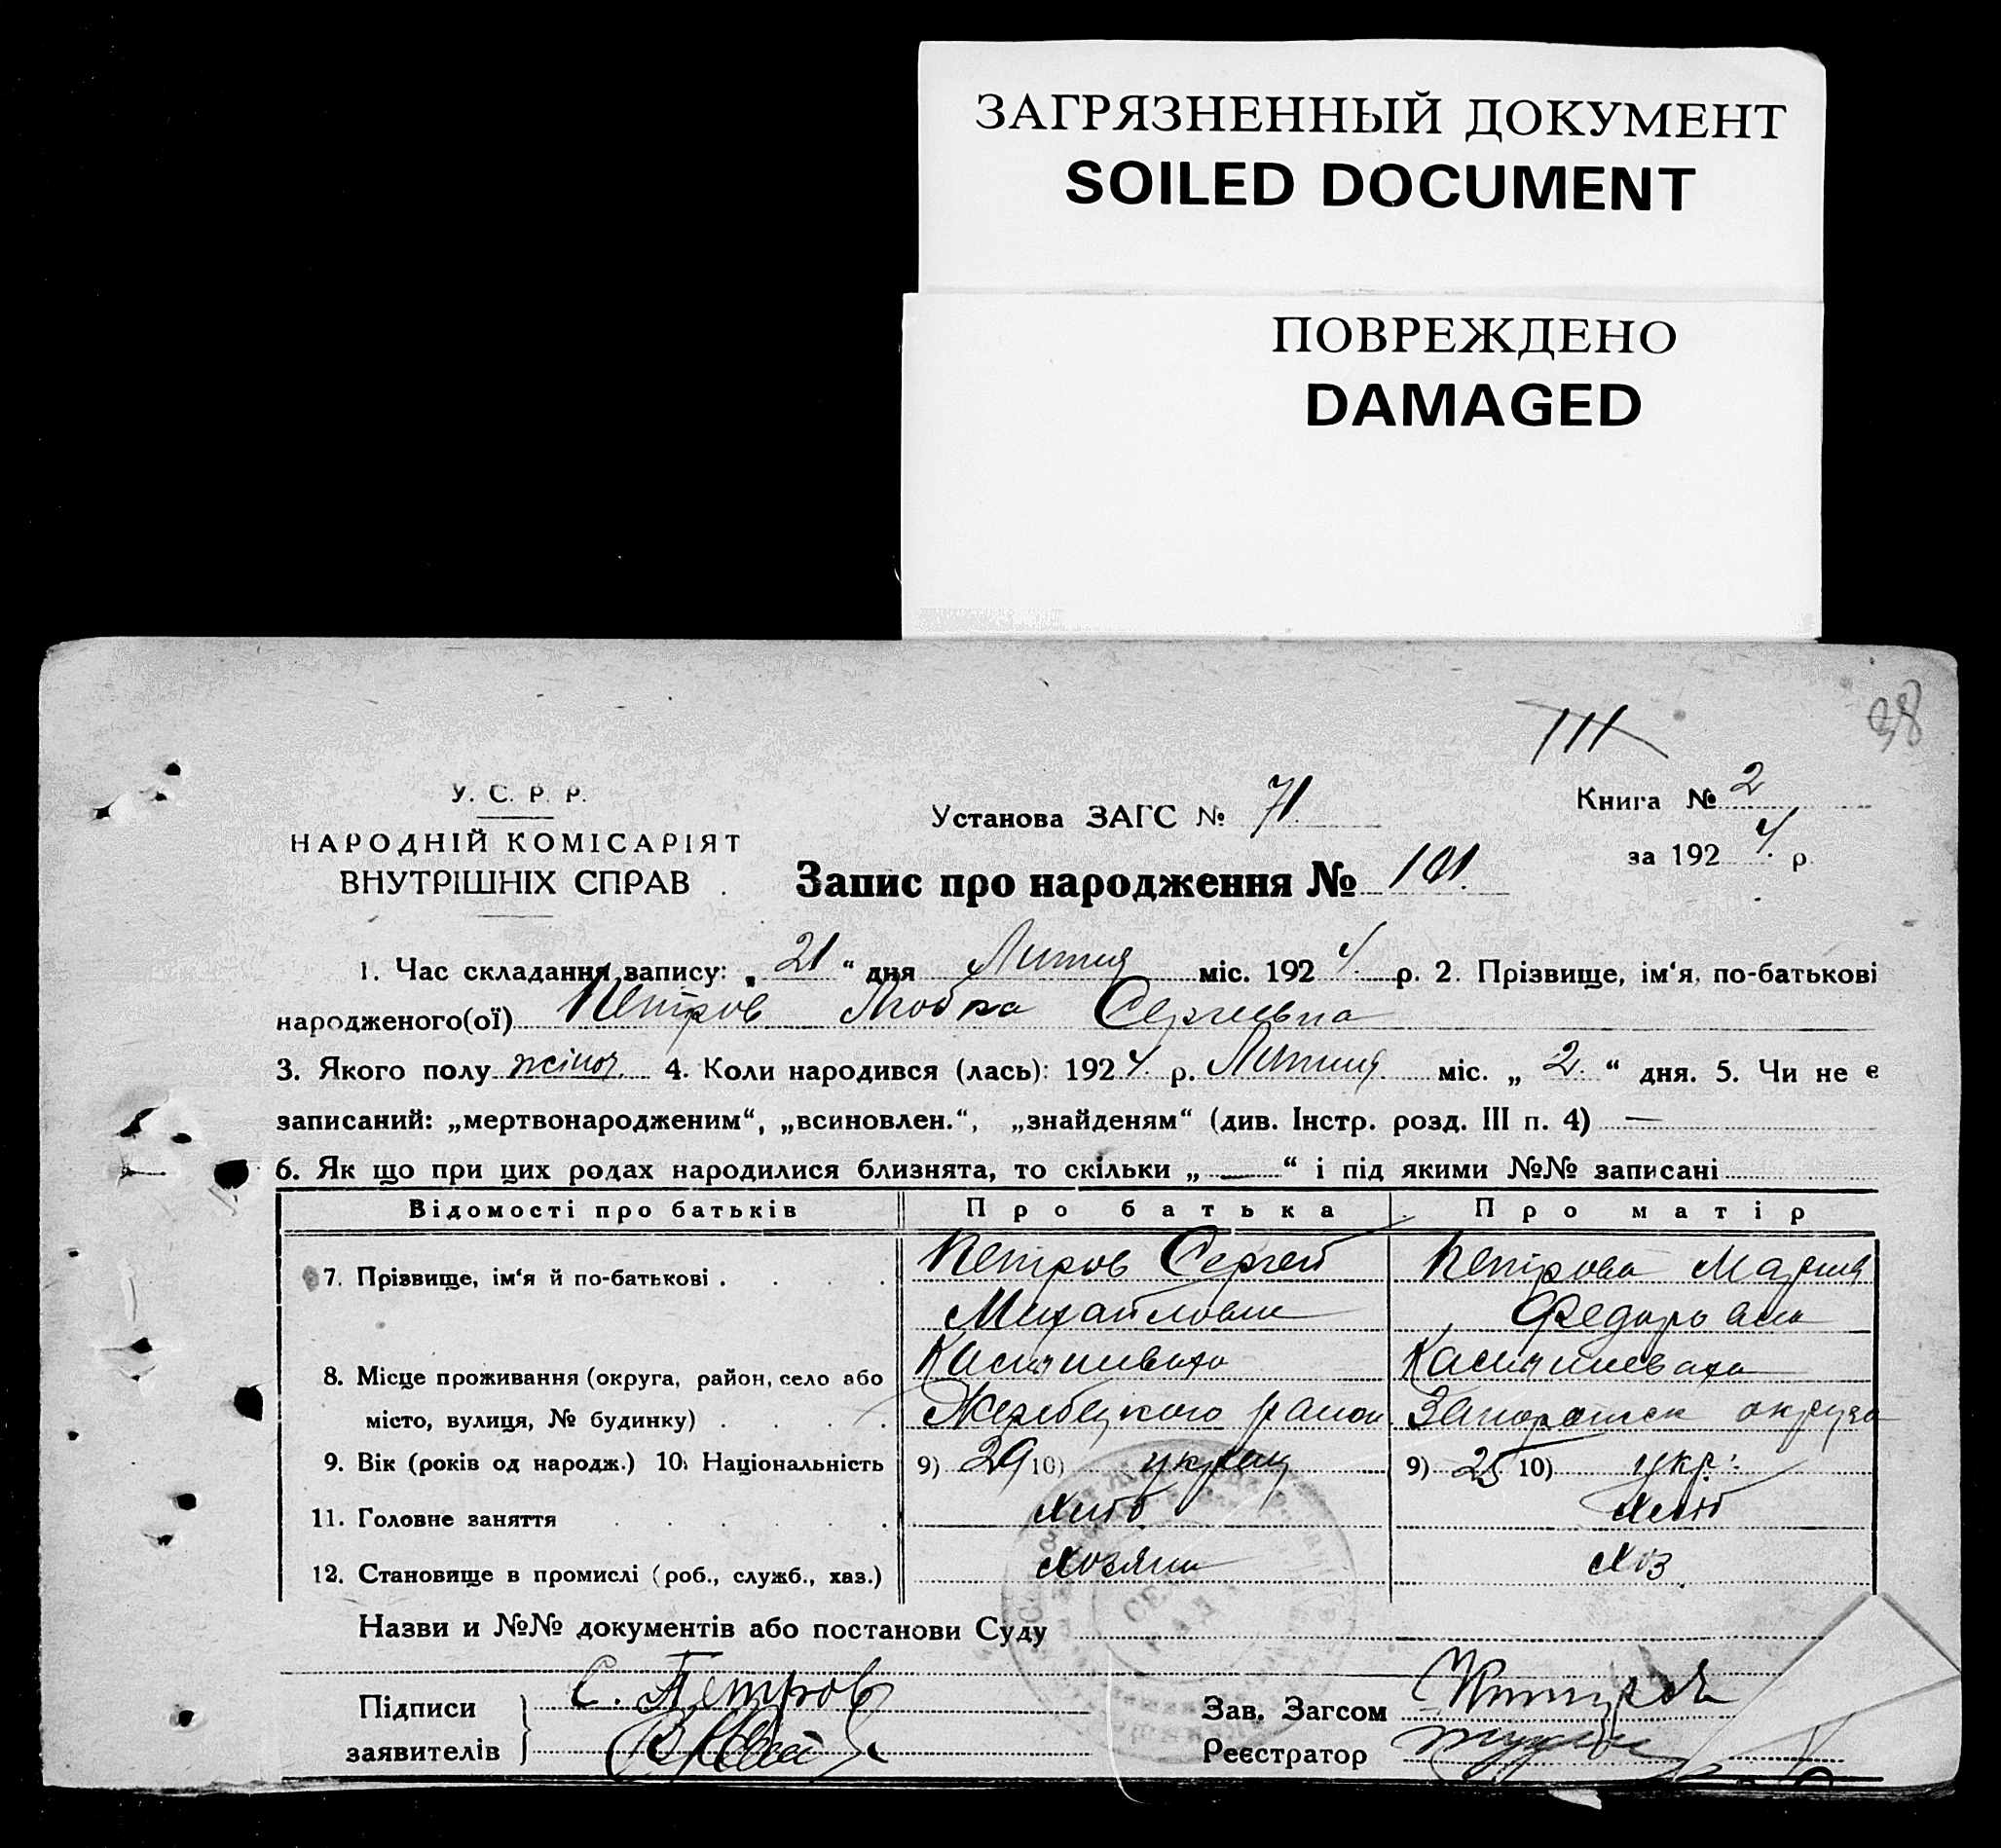 ЗАГРЯЗНЕННЫЙ ДОКУМЕНТ
SOILED DOCUMENT
ПОВРЕЖДЕНО
DAMAGED
38
111
У. С. Р. Р.
НАРОДНІЙ КОМІСАРІЯТ
ВНУТРІШНІХ СПРАВ
Установа ЗАГС № 71.
Книга № 2
за 1924. р.
Запис про народження № 101.
1. Час складання запису: „21“ дня Липня міс. 1924. р. 2. Прізвище, ім‘я, по-батькові
народженого(ої) Петров Любка Сергиевна
3. Якого полу жіноч. 4. Коли народився (лась): 1924 р. Липня міс. „2.“ дня. 5. Чи не є
записаний: „мертвонародженим“, „всиновлен.“, „знайденям“ (див. Інстр. розд. III п. 4) —
6. Як що при цих родах народилися близнята, то скільки „—“ і під якими №№ записані
Відомості про батьків Про батька Про матір
7. Прізвище, ім‘я й по-батькові Петров Сергей Петрова Мария
Федоровна
8. Місце проживання (округа, район, село або
місто, вулиця, № будинку) Жеребецкого район Запорожск округа
9. Вік (років од народж.) 10. Національність 9) 29 10) україн 9) 25 10) укр.
11. Головне заняття Хліб. Хліб
12. Становище в промислі (роб., служб., хаз.) Хозяин Хоз.
Назви и №№ документів або постанови Суду
Підписи С. Петров Зав. Загсом
заявителів Реєстратор